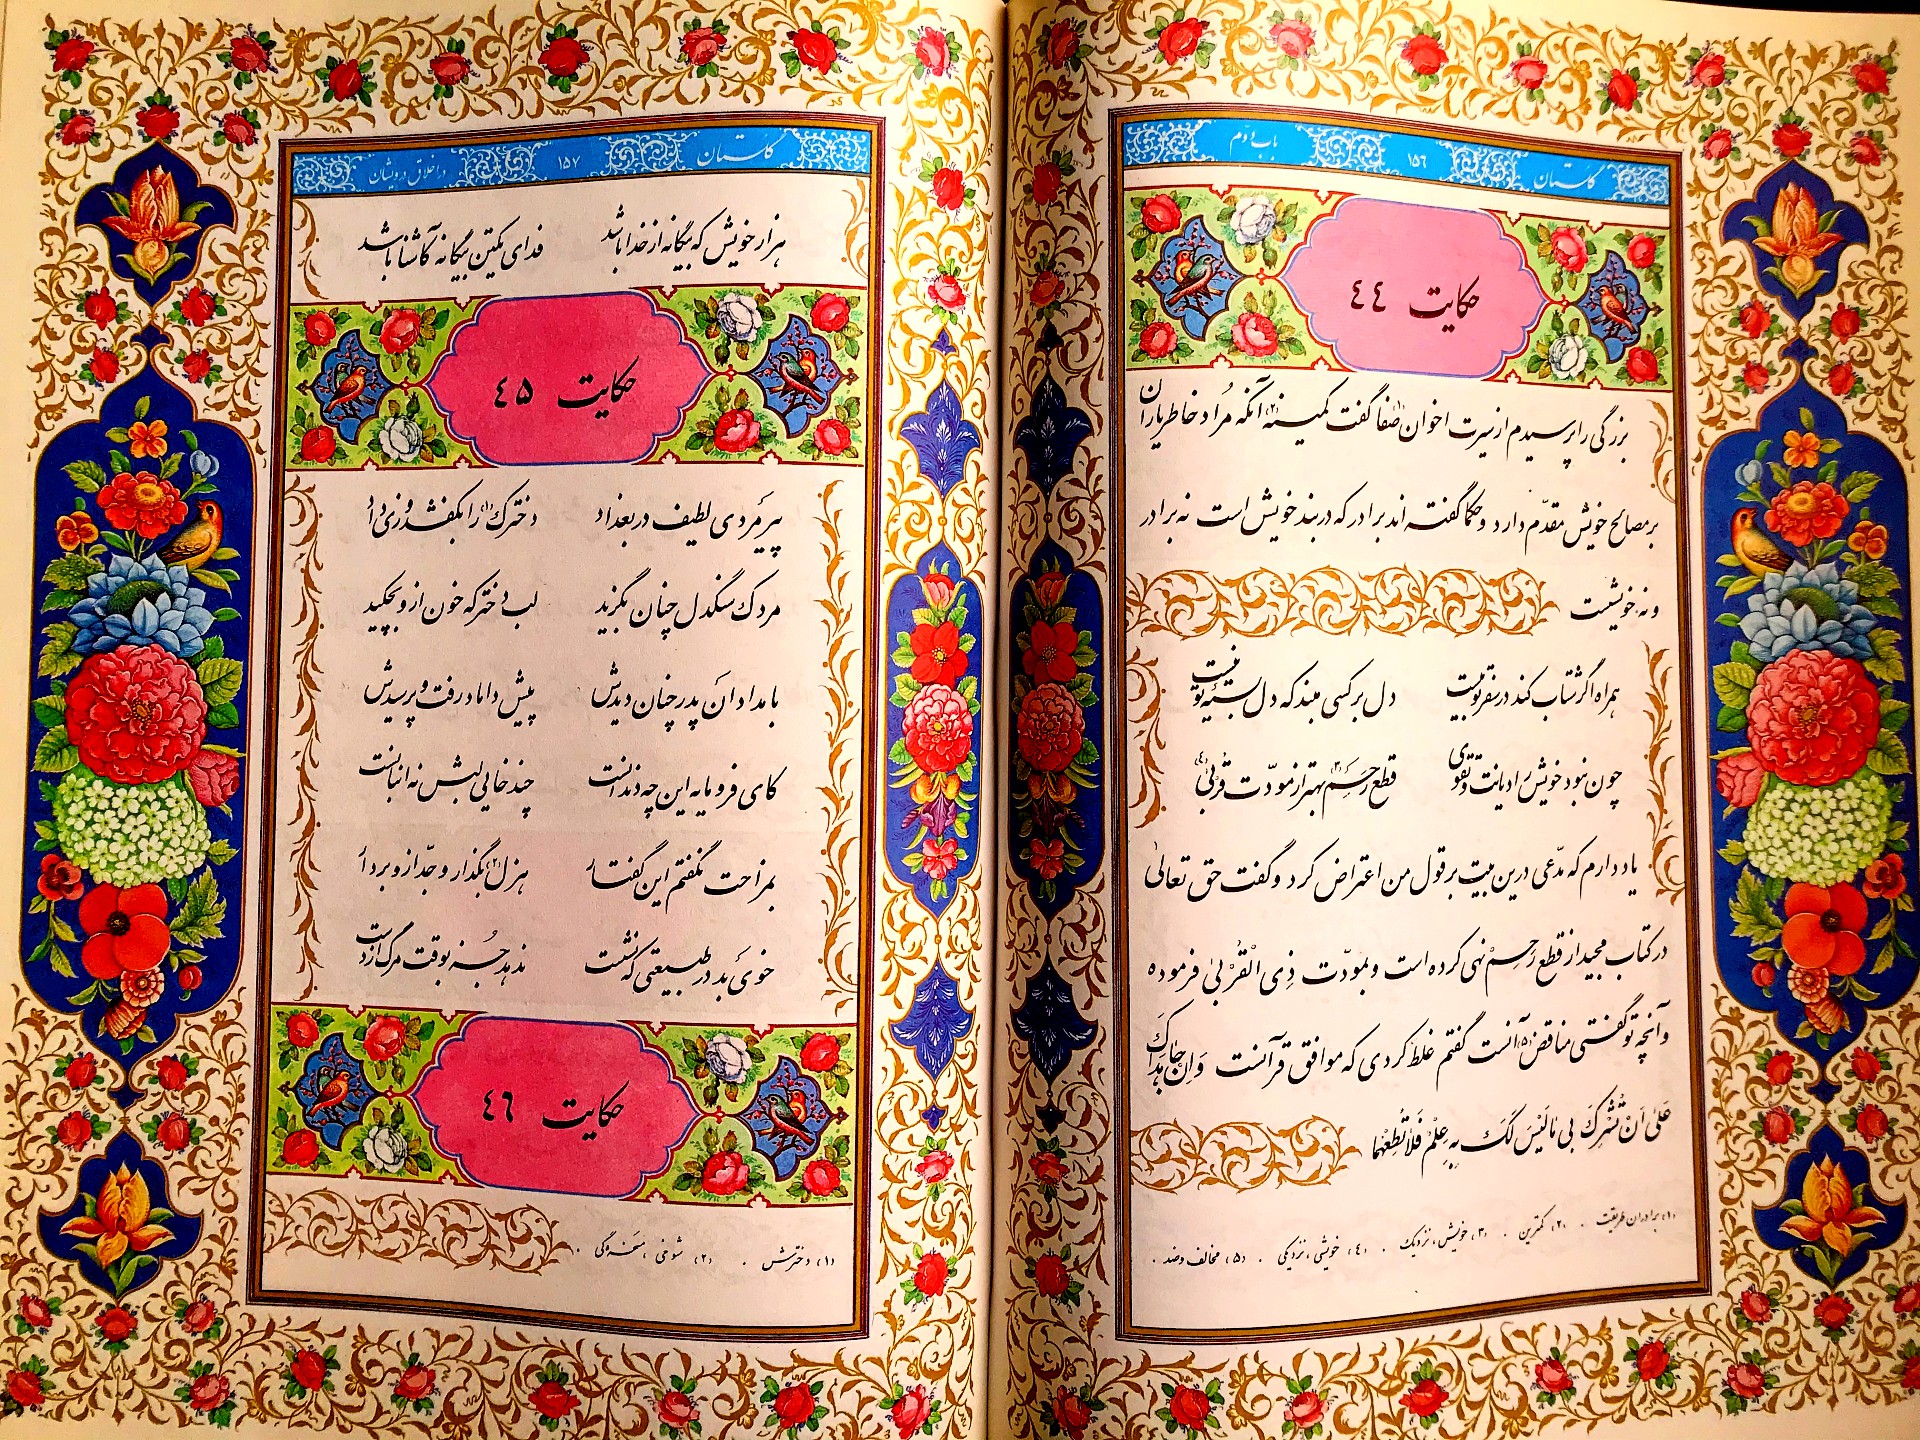 گلستان ۱۵۶ باب دوم
حکایت ٤٤
بزرگی را پرسیدم از سیرت اخوان(۱) صفا گفت کمینه(۲) آنکه مُراد خاطر یاران
بر مصالح خویش مقدّم دارد و حکما گفته اند برادر که در بند خویش است نه برادر
و نه خویشست
همراه اگر شتاب کند در سفر تو بیست دل بر کسی مبند که دل بستهٔ تو نیست
چون نبود خویش را دیانت و تقوی قطع رَحِم(۳) بهتر از مودّت قُربیٰ(٤)
یاد دارم که مدّعی درین بیت بر قول من اعتراض کرد و گفت حق تعالیٰ
در کتاب مجید از قطع رَحِمْ نهی کرده است و بمودّت ذِی الْقُرْبیٰ فرموده
و آنچه تو گفتی مناقض(۵) آنست گفتم غلط کردی که موافق قرآنست وَاِنْ جاهَداکَ
عَلیٰ اَنْ تُشْرِکَ بی مالَیْسَ لَکَ بِهِ عِلْمٌ فَلا تُطِعْهُما
(۱) برادران طریقت . (۲) کمترین . (۳) خویش، نزدیک . (٤) خویشی، نزدیکی . (۵) مخالف و ضد .
گلستان ۱۵۷ در اخلاق درویشان
هزار خویش که بیگانه از خدا باشد فدای یکتن بیگانه کآشنا باشد
حکایت ٤۵
پیرمَردی لطیف در بغداد دخترک(۱) را بکفشدوزی داد
مردک سنگدل چنان بگزید لب دختر که خون ازو بچکید
بامدادان پدر چنان دیدش پیش داماد رفت و پرسیدش
کای فرومایه این چه دندانست چند خایی لبش نه انبانست
بمزاحت نگفتم این گفتار هزل(۲) بگذار و جدّ ازو بردار
خویَ بد در طبیعتی که نشست ندهد جُز بوقت مرگ از دست
حکایت ٤٦
(۱) دخترش . (۲) شوخی، مسخرگی .